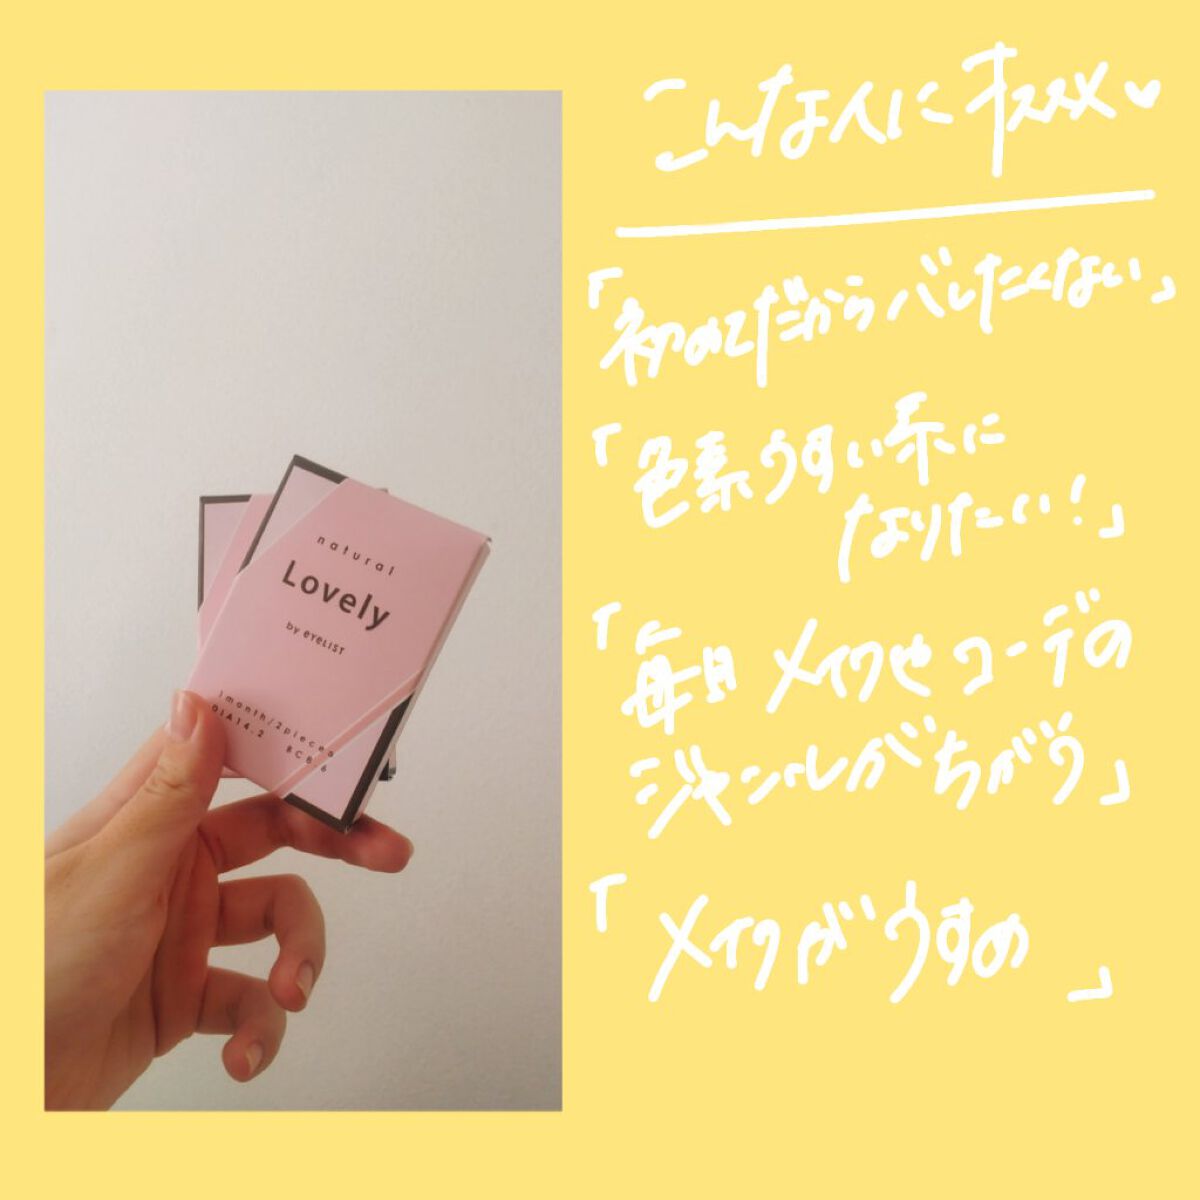 こんな人にオススメ♥
「初めてだからバレたくない」
「色素うすい系に
なりたい！」
「毎日メイクやコーデの
ジャンルがちがう」
「メイクがうすめ」
natural
Lovely
by EYELIST
1month/2pieces
DIA14.2 BC8.6